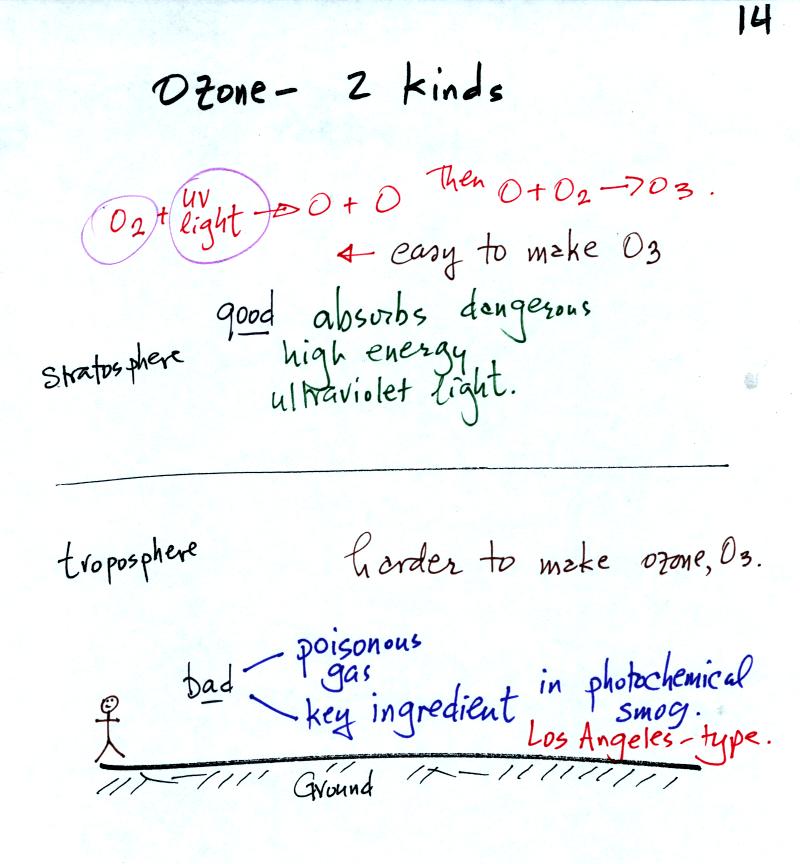 14
Ozone - 2 kinds
O2 + uv light → O + O Then O + O2 → O3.
← easy to make O3
good absorbs dangerous
high energy
ultraviolet light.
stratosphere
troposphere harder to make ozone, O3.
bad poisonous
gas
key ingredient in photochemical
smog.
Los Angeles-type.
Ground